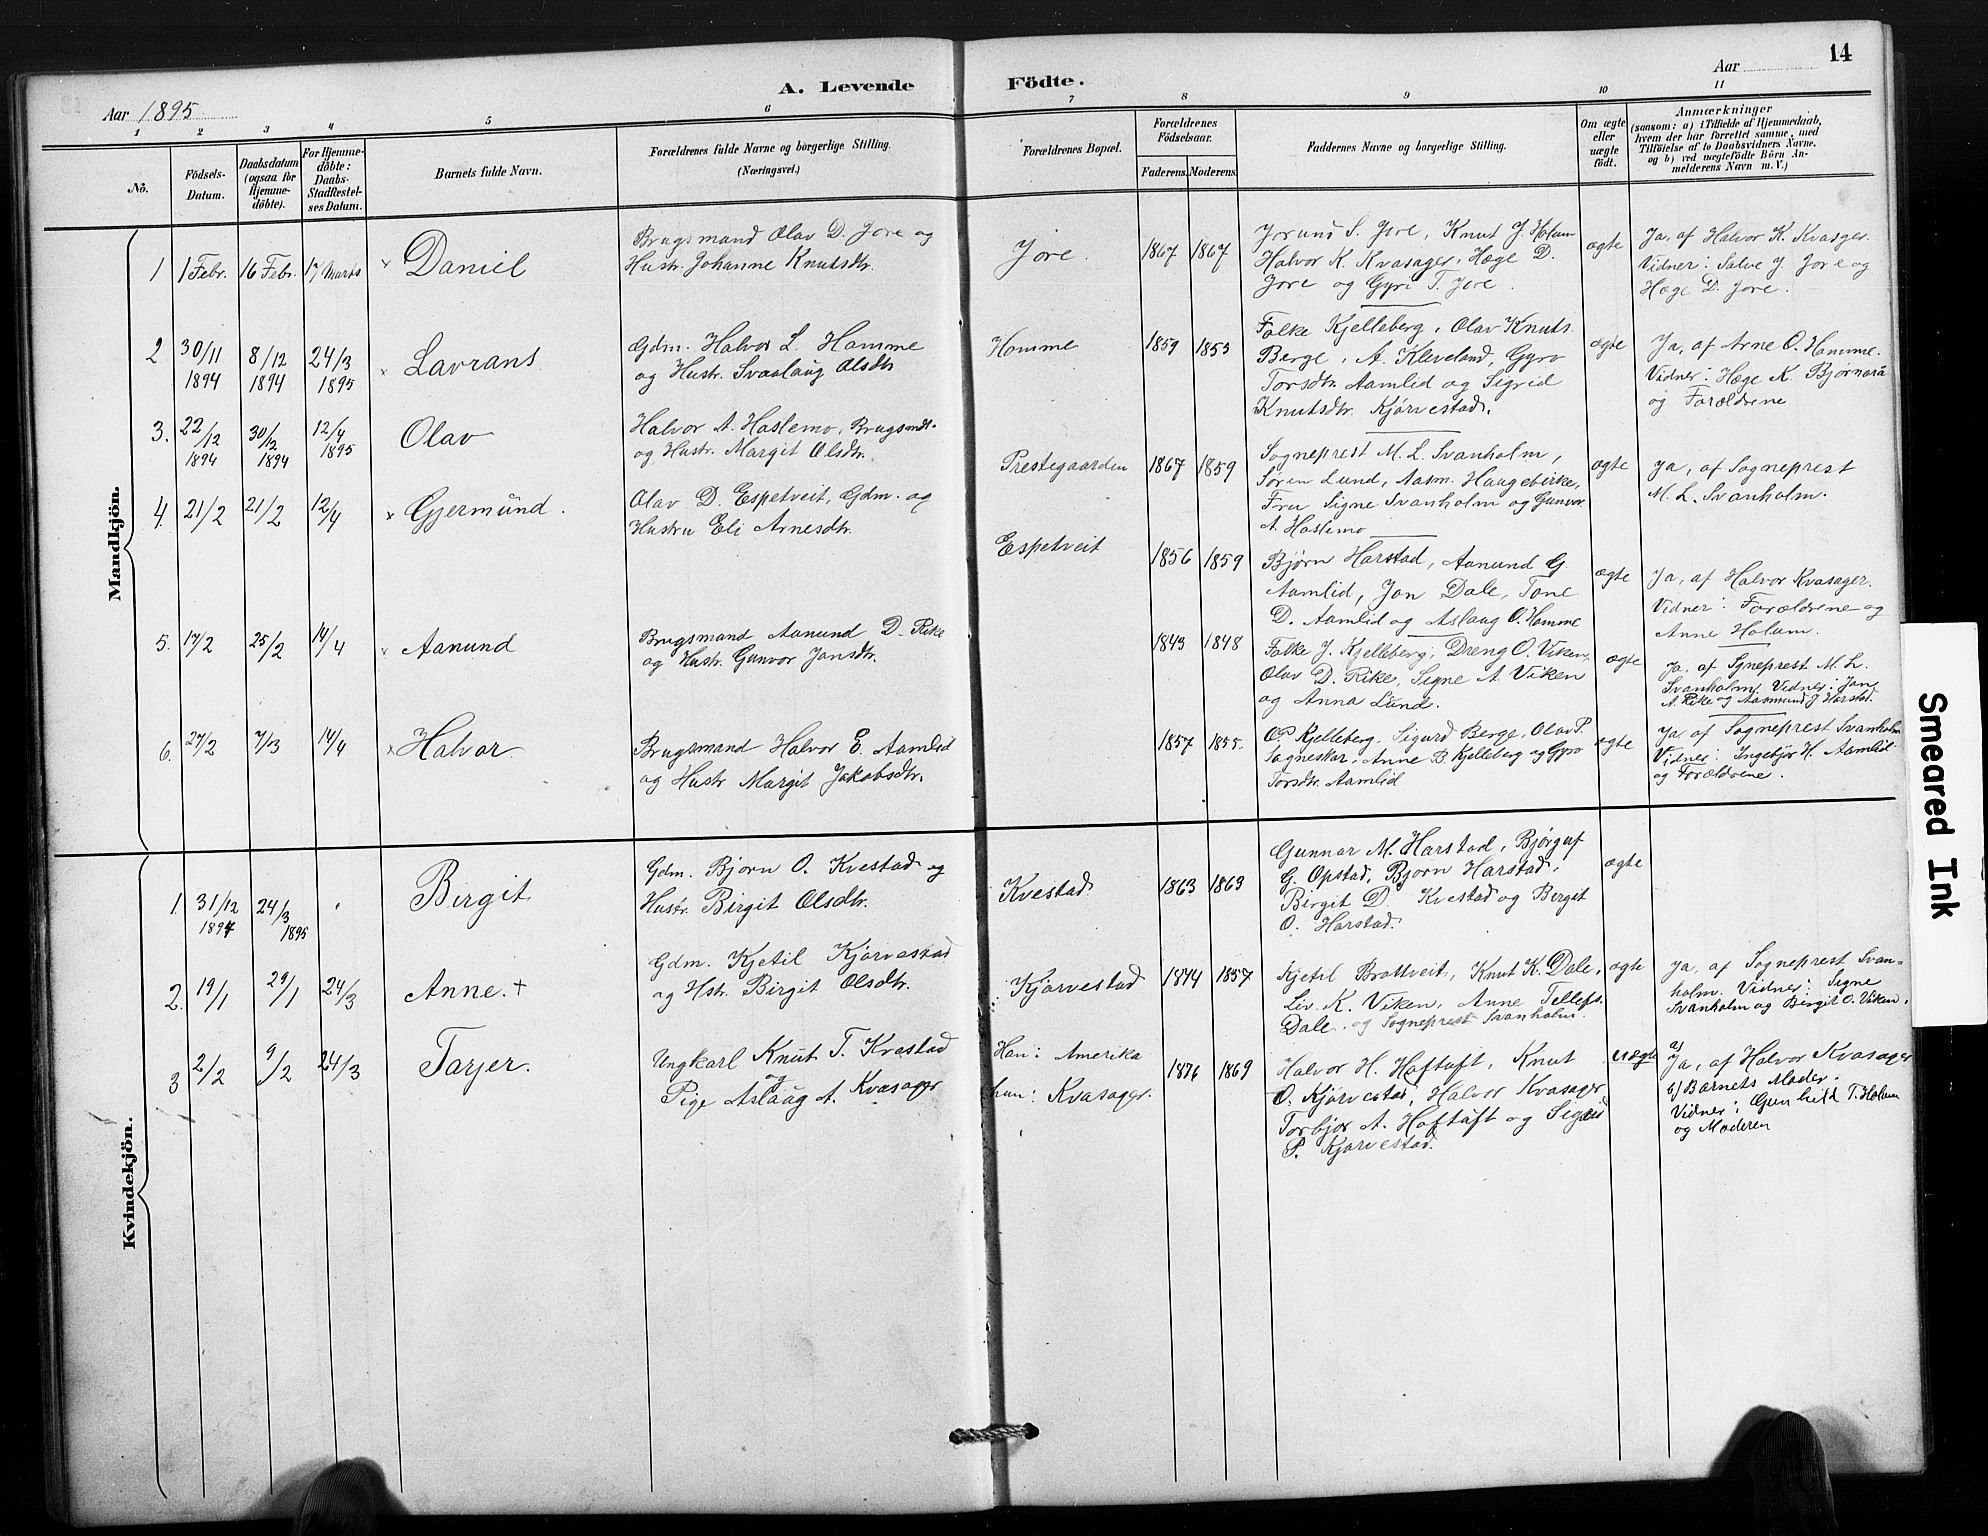 14
A. Levende Födte.
Aar 1895
Aar
1 2 3 4 5 6 7 8 9 10 11
Nö.
Födsels-
Datum.
Daabsdatum
(ogsaa for
Hjemme-
döbte).
For Hjemme-
döbte:
Daabs-
Stadfæstel-
ses Datum.
Barnets fulde Navn.
Forældrenes fulde Navne og borgerlige Stilling.
(Næringsvei.)
Forældrenes Bopæl.
Forældrenes
Födselsaar.
Faderens. Moderens.
Faddernes Navne og borgerlige Stilling.
Om ægte
eller
uægte
födt.
Anmærkninger
(saasom: a) i Tilfælde af Hjemmedaab,
hvem der har forrettet samme, med
Tilföielse af to Daabsvidners Navne,
og b) ved uægtefödte Börn An-
melderens Navn m. V.)
Mandkjön.
1 1 Febr. 16 Febr. 17 Marts × Daniel
Brugsmand Olav D. Jore og
Hustr. Johanne Knutsdtr.
Jore. 1867 1867
Jorund S. Jore, Knut J. Holum
Halvor K. Kvasager, Hæge D.
Jore og Gyri T. Jore.
ægte
Ja, af Halvor K. Kvasager.
Vidner: Salve J. Jore og
Hæge D. Jore.
2 30/11 1894 8/12 1894 24/3 1895 × Lavrans
Gdm. Halvor L. Homme
og Hustr. Svaalaug Olsdtr.
Homme 1859 1853
Folke Kjelleberg, Olav Knuts.
Berge, A. Kleveland, Gyro
Torsdtr. Aamlid og Sigrid
Knutsdtr. Kjörvestad.
ægte
Ja, af Arne O. Homme.
Vidner: Hæge K. Bjørnarå
og Forældrene
3. 22/12 1894 30/12 1894 12/4 1895 Olav
Halvor A. Haslemo, Brugsmd.
og Hustr. Margit Olsdtr.
Prestegaarden 1867 1859
Sogneprest M. L. Svanholm,
Søren Lund, Aasm. Haugebirke,
Fru Signe Svanholm og Gunvor
A. Haslemo
ægte
Ja, af Sogneprest
M. L. Svanholm.
4. 21/2 21/2 12/4 × Gjermund.
Olav D. Espetveit, Gdm. og
Hustru Eli Arnesdtr.
Espetveit 1856 1859
Bjørn Harstad, Aanund G.
Aamlid, Jon Dale, Tone
D. Aamlid og Aslaug O. Homme
ægte
Ja, af Halvor Kvasager.
Vidner: Forældrene og
Anne Holum.
5. 17/2 25/2 14/4 × Aanund
Brugsmand Aanund D. Rike
og Hustr. Gunvor Jonsdtr.
1843 1848
Folke J. Kjelleberg, Dreng O. Viken,
Olav D. Rike, Signe A. Viken
og Anna Lund.
ægte
Ja, af Sgneprest M. L.
Svanholm. Vidner: Jon
A. Rike og Aasmund J. Harstad.
6. 27/2 7/3 14/4 × Halvor
Brugsmand Halvor E. Aamlid
og Hustr Margit Jakobsdtr.
1857 1855.
O. Kjelleberg, Sigurd Berge, Olav P.
Sagneskar, Anne B. Kjelleberg og Gyro
Torsdtr. Aamlid
ægte
Ja, af Sogneprest Svanholm
Vidner: Ingebjør H. Aamlid
og Forældrene.
Kvindekjön.
1. 31/12 1894 24/3 1895 Birgit
Gdm. Bjørn O. Kvestad og
Hustr. Birgit Olsdtr.
Kvestad 1863 1863
Gunnar M. Harstad, Bjørguf
G. Opstad, Bjørn Harstad,
Birgit D. Kvestad og Birgit
O. Harstad.
ægte
2. 19/1 29/1 24/3 Anne. +
Gdm. Kjetil Kjörvestad
og Hstr. Birgit Olsdtr.
Kjörvestad 1844 1857
Kjetil Brottveit, Knut K. Dale,
Liv K. Viken, Anne Tellefs.
Dale og Sogneprest Svanholm.
ægte
Ja, af Sogneprest Svan-
holm. Vidner: Signe
Svanholm og Birgit O. Viken.
3 2/2 9/2 24/3 Tarjer.
Ungkarl Knut T. Kvestad
og
Pige Aslaug A. Kvasager
Han: Amerika
hun: Kvasager.
1876 1869
Halvor H. Hoftuft, Knut
O. Kjörvestad, Halvor Kvasager
Torbjør A. Hoftuft og Sigrid
P. Kjörvestad.
uægte
a)
Ja, af Halvor Kvasager
b) Barnets Moder.
Vidner: Gunhild T. Holum
og Moderen
Smeared Ink